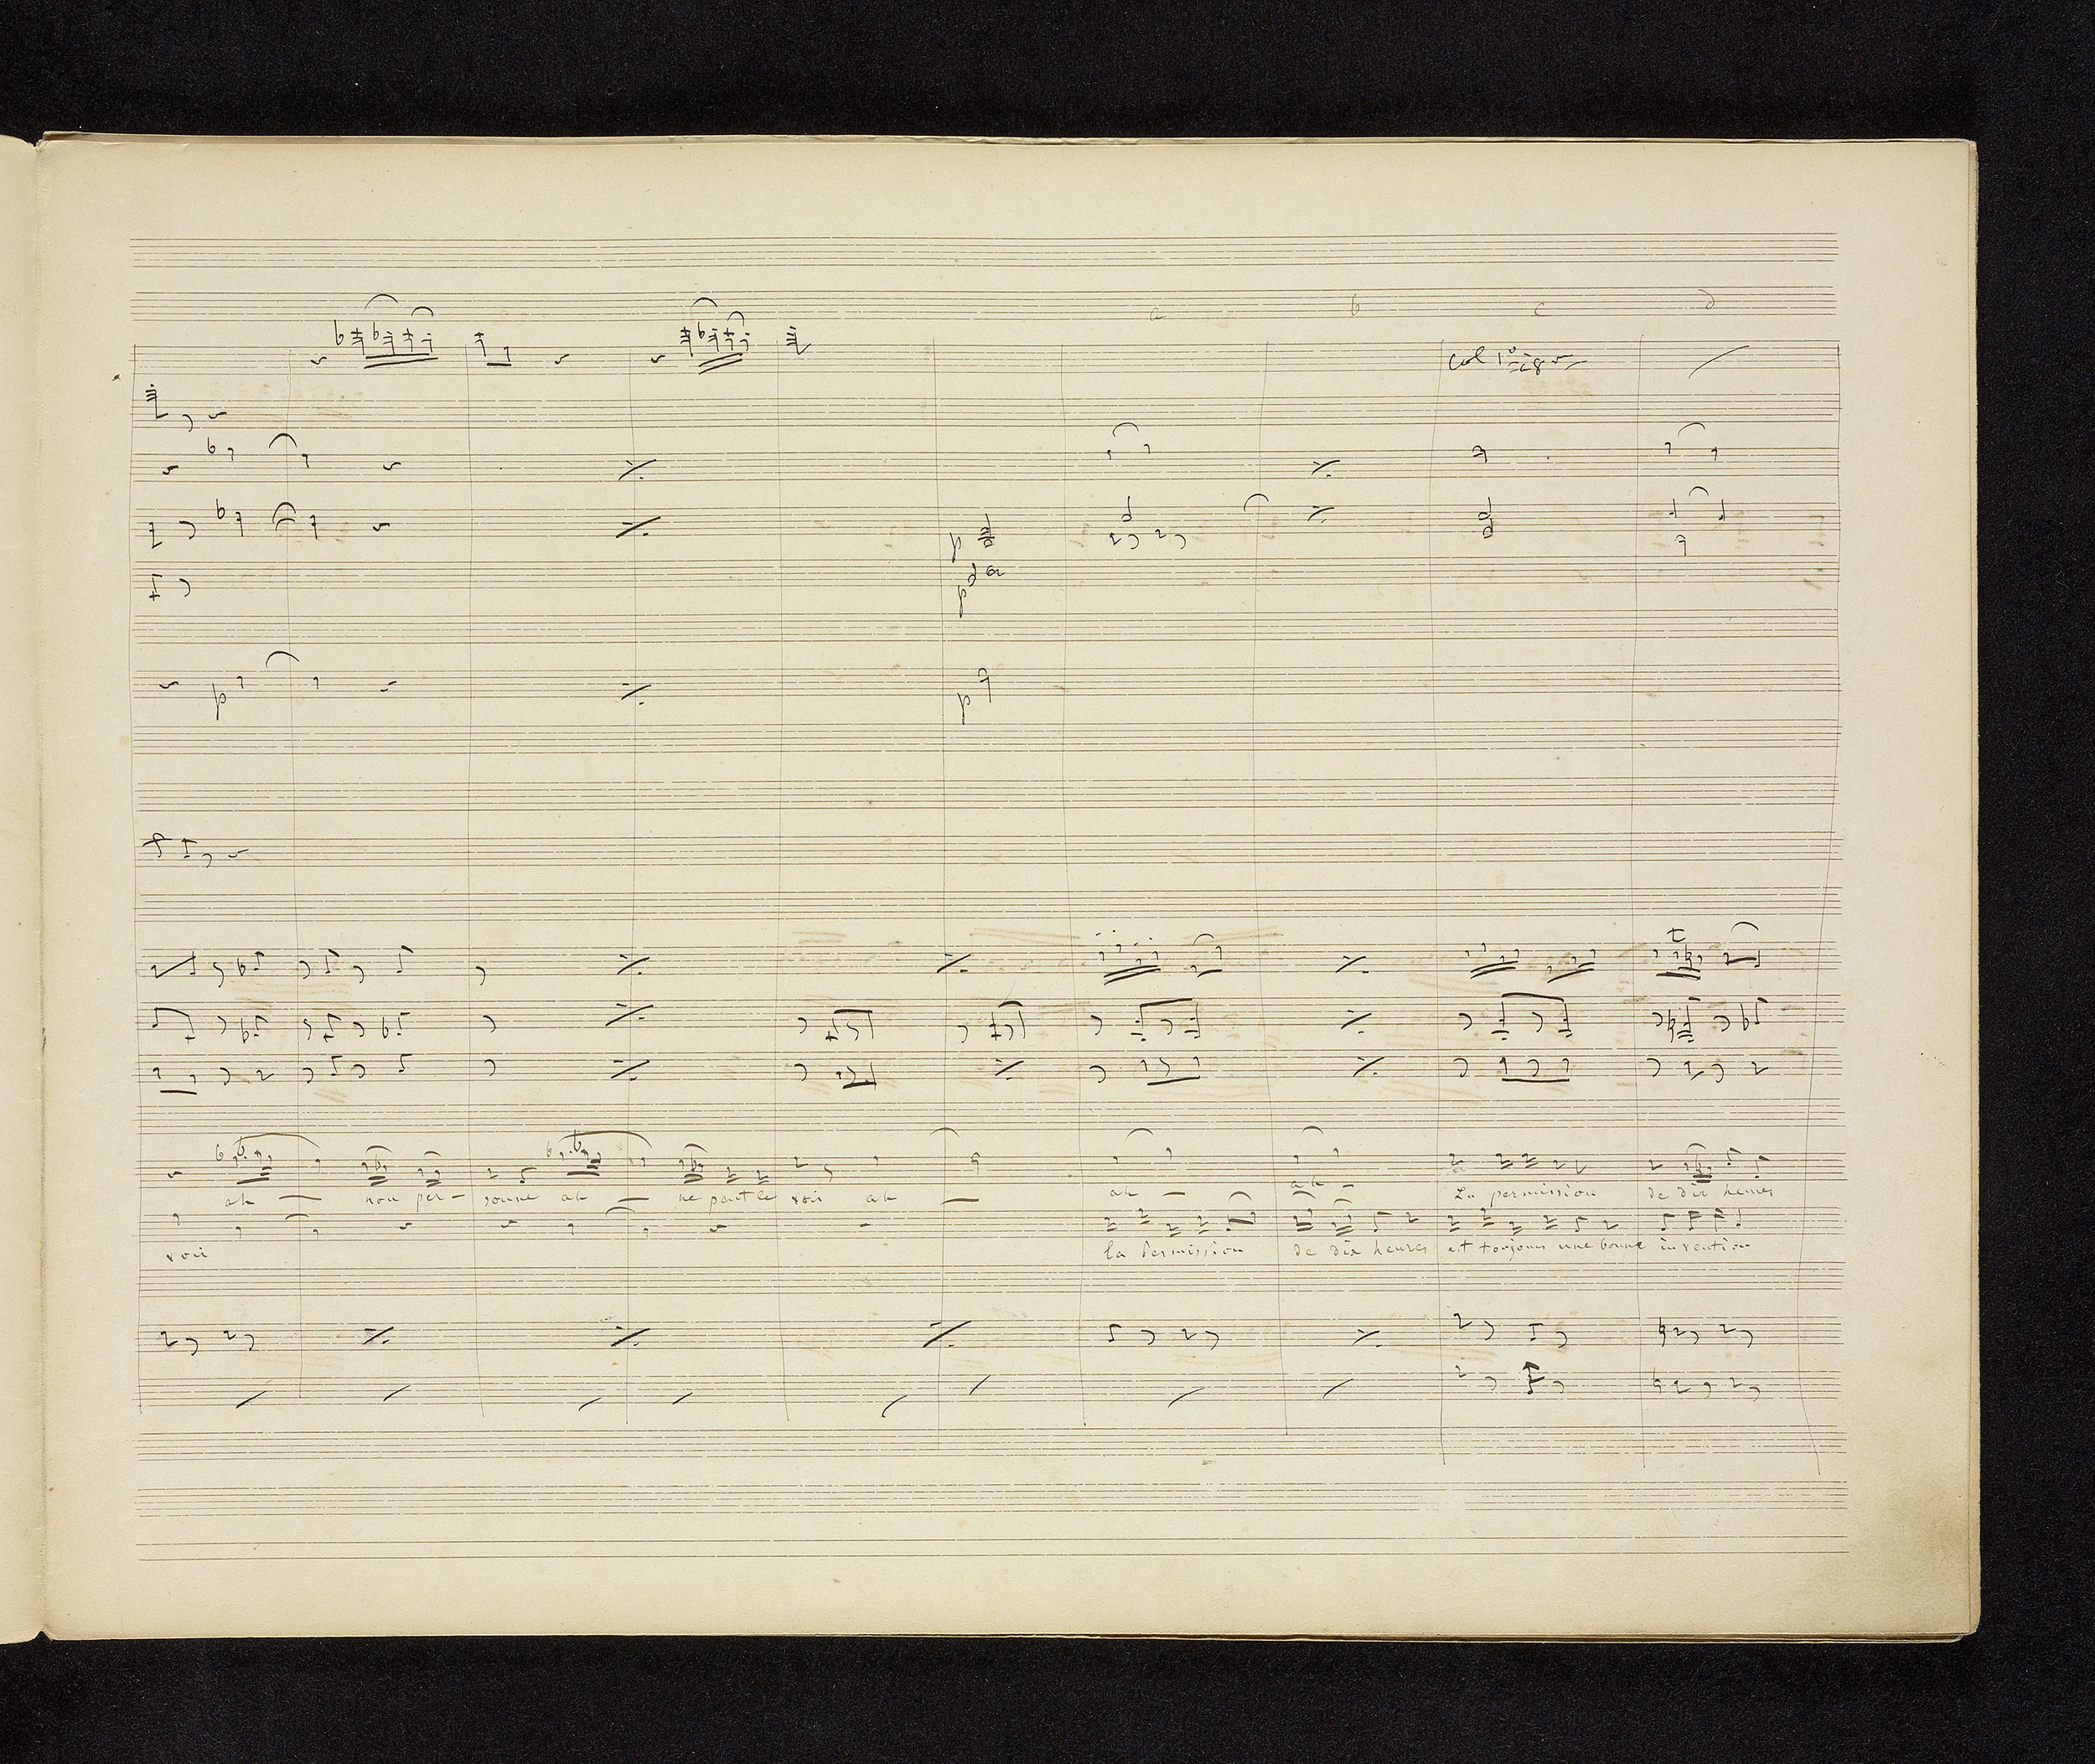 a b c d
col 1º
p
p
p p
ah — non per- sonne ah — ne peut le voir ah —
ah — ah — La permission de dix heures
voir
la Permission de dix heures est toujours une bonne invention